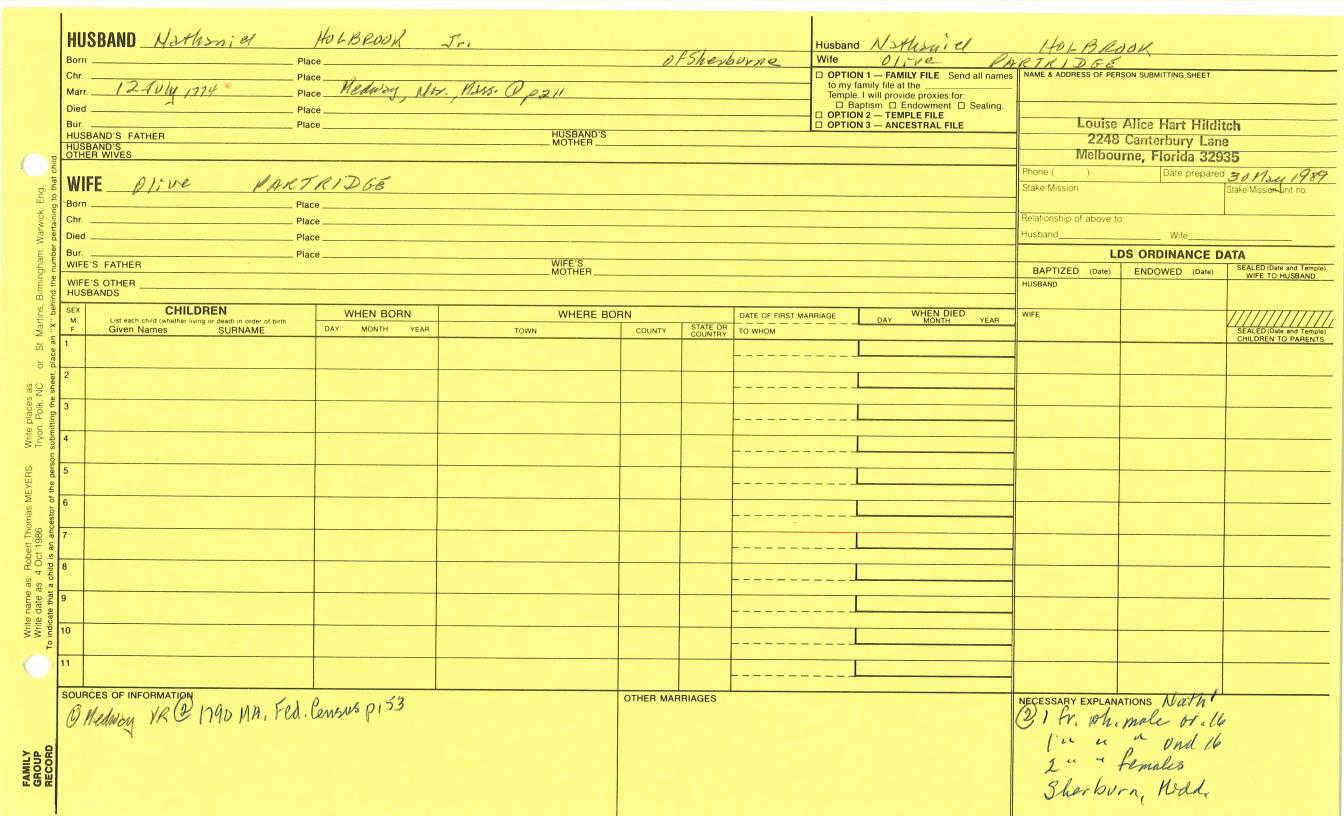 HUSBAND Nathaniel HOLBROOK Jr.
Born Place of Sherburne
Chr. Place
Marr. 12 July 1774 Place Medway, Nor., Mass. ① p 211
Died Place
Bur. Place
HUSBAND'S FATHER HUSBAND'S MOTHER
HUSBAND'S OTHER WIVES
WIFE Olive PARTRIDGE
Born Place
Chr. Place
Died Place
Bur. Place
WIFE'S FATHER WIFE'S MOTHER
WIFE'S OTHER HUSBANDS
Husband Nathaniel HOLBROOK
Wife Olive PARTRIDGE
☐ OPTION 1 — FAMILY FILE Send all names
to my family file at the
Temple. I will provide proxies for:
☐ Baptism ☐ Endowment ☐ Sealing.
☐ OPTION 2 — TEMPLE FILE
☐ OPTION 3 — ANCESTRAL FILE
NAME & ADDRESS OF PERSON SUBMITTING SHEET
Louise Alice Hart Hilditch
2248 Canterbury Lane
Melbourne, Florida 32935
Phone ( ) Date prepared 30 May 1989
Stake/Mission Stake/Mission unit no.
Relationship of above to:
Husband Wife
LDS ORDINANCE DATA
BAPTIZED (Date) ENDOWED (Date) SEALED (Date and Temple) WIFE TO HUSBAND
HUSBAND
WIFE
SEALED (Date and Temple) CHILDREN TO PARENTS
SEX M. F.
CHILDREN
List each child (whether living or dead) in order of birth
Given Names SURNAME
WHEN BORN
DAY MONTH YEAR
WHERE BORN
TOWN COUNTY STATE OR COUNTRY
DATE OF FIRST MARRIAGE
TO WHOM
WHEN DIED
DAY MONTH YEAR
1
2
3
4
5
6
7
8
9
10
11
SOURCES OF INFORMATION
① Medway VR ② 1790 MA. Fed. Census p. 53
OTHER MARRIAGES
NECESSARY EXPLANATIONS Nath'l
② 1 fr. wh. male ov. 16
1 " " " und 16
2 " " females
Sherburn, Midd.
Write name as: Robert Thomas MEYERS Write places as:
Write date as: 4 Oct 1986 Tryon, Polk, NC or St. Martins, Birmingham, Warwick, Eng.
To indicate that a child is an ancestor of the person submitting the sheet, place an "X" behind the number pertaining to that child.
FAMILY GROUP RECORD